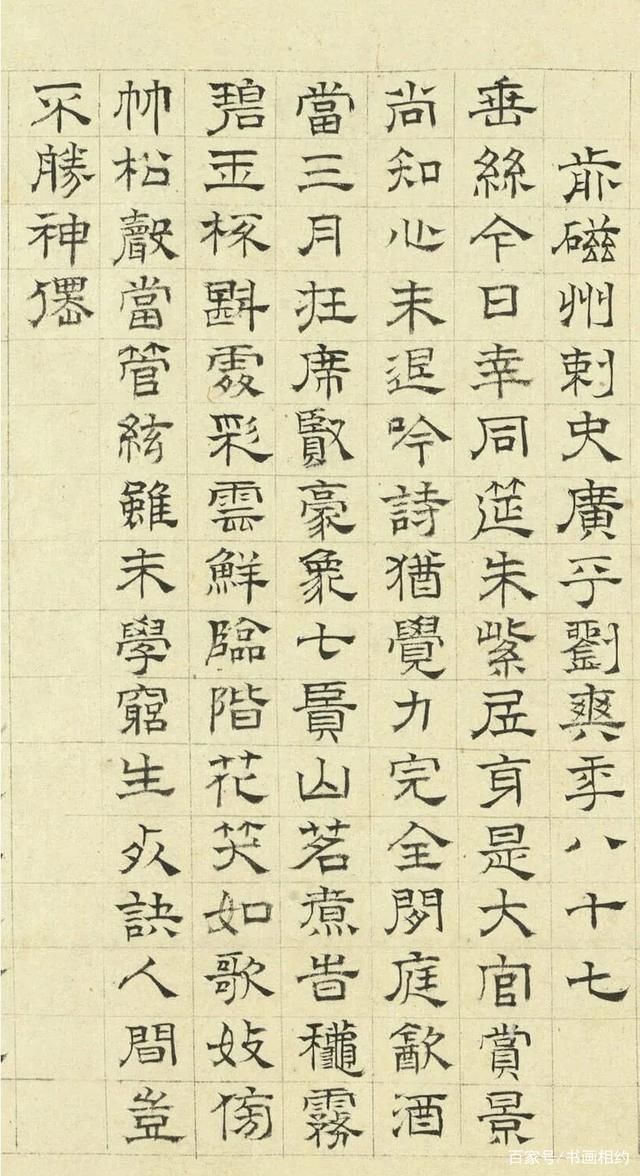 前磁州刺史廣平劉爽年八十七
垂絲今日幸同筵朱紫居身是大官賞景
尚知心未退吟詩猶覺力完全閑庭飲酒
當三月狂席賢豪象七賢山茗煮時穐霧
碧玉杯斟處彩雲鮮臨階花笑如歌妓傍
竹松聲當管絃雖未學窮生死訣人間豈
不勝神僊
百家号/书画相约